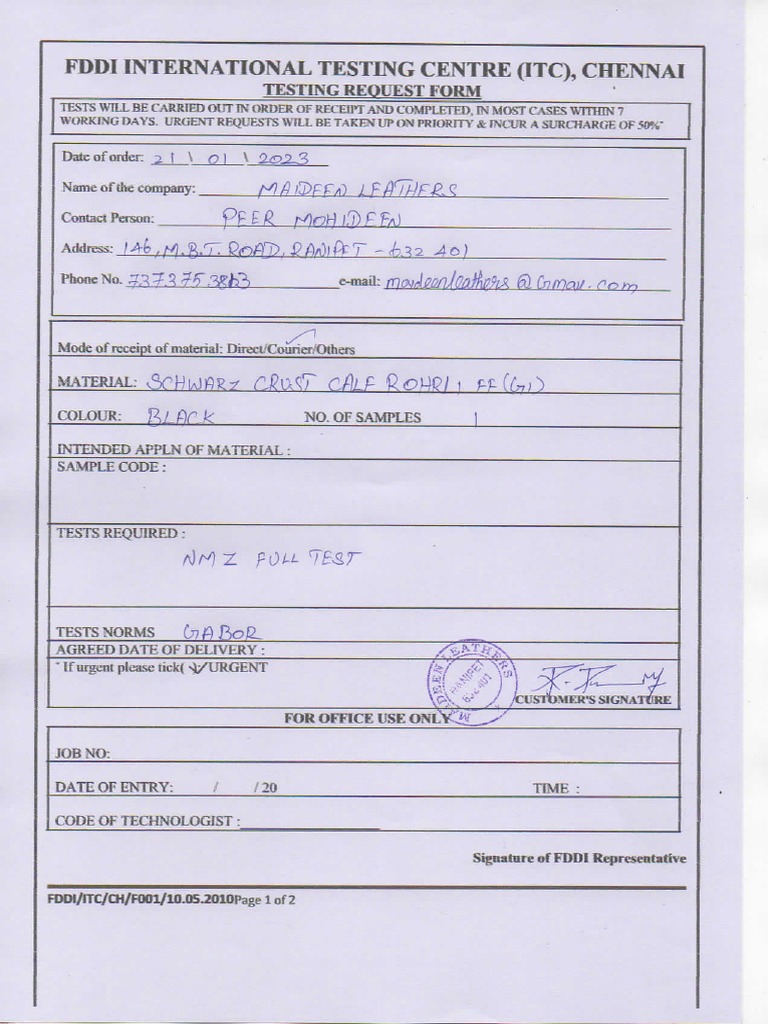 FDDI INTERNATIONAL TESTING CENTRE (ITC), CHENNAI
TESTING REQUEST FORM
TESTS WILL BE CARRIED OUT IN ORDER OF RECEIPT AND COMPLETED, IN MOST CASES WITHIN 7
WORKING DAYS. URGENT REQUESTS WILL BE TAKEN UP ON PRIORITY & INCUR A SURCHARGE OF 50%*
Date of order: 21 \ 01 \ 2023
Name of the company: MAIDEEN LEATHERS
Contact Person: PEER MOHIDEEN
Address: 146, M.B.T. ROAD, RANIPET - 632 401
Phone No. e-mail: maideenleathers@Gmail.com
Mode of receipt of material: Direct/Courier/Others
MATERIAL: SCHWARZ CRUST CALF ROHRI, FF (G1)
COLOUR: BLACK NO. OF SAMPLES 1
INTENDED APPLN OF MATERIAL :
SAMPLE CODE :
TESTS REQUIRED :
NMZ FULL TEST
TESTS NORMS GABOR
AGREED DATE OF DELIVERY :
* If urgent please tick( ✓) URGENT
MAIDEEN LEATHERS
RANIPET
632 401
CUSTOMER'S SIGNATURE
FOR OFFICE USE ONLY
JOB NO:
DATE OF ENTRY: / / 20 TIME :
CODE OF TECHNOLOGIST :
Signature of FDDI Representative
FDDI/ITC/CH/F001/10.05.2010Page 1 of 2